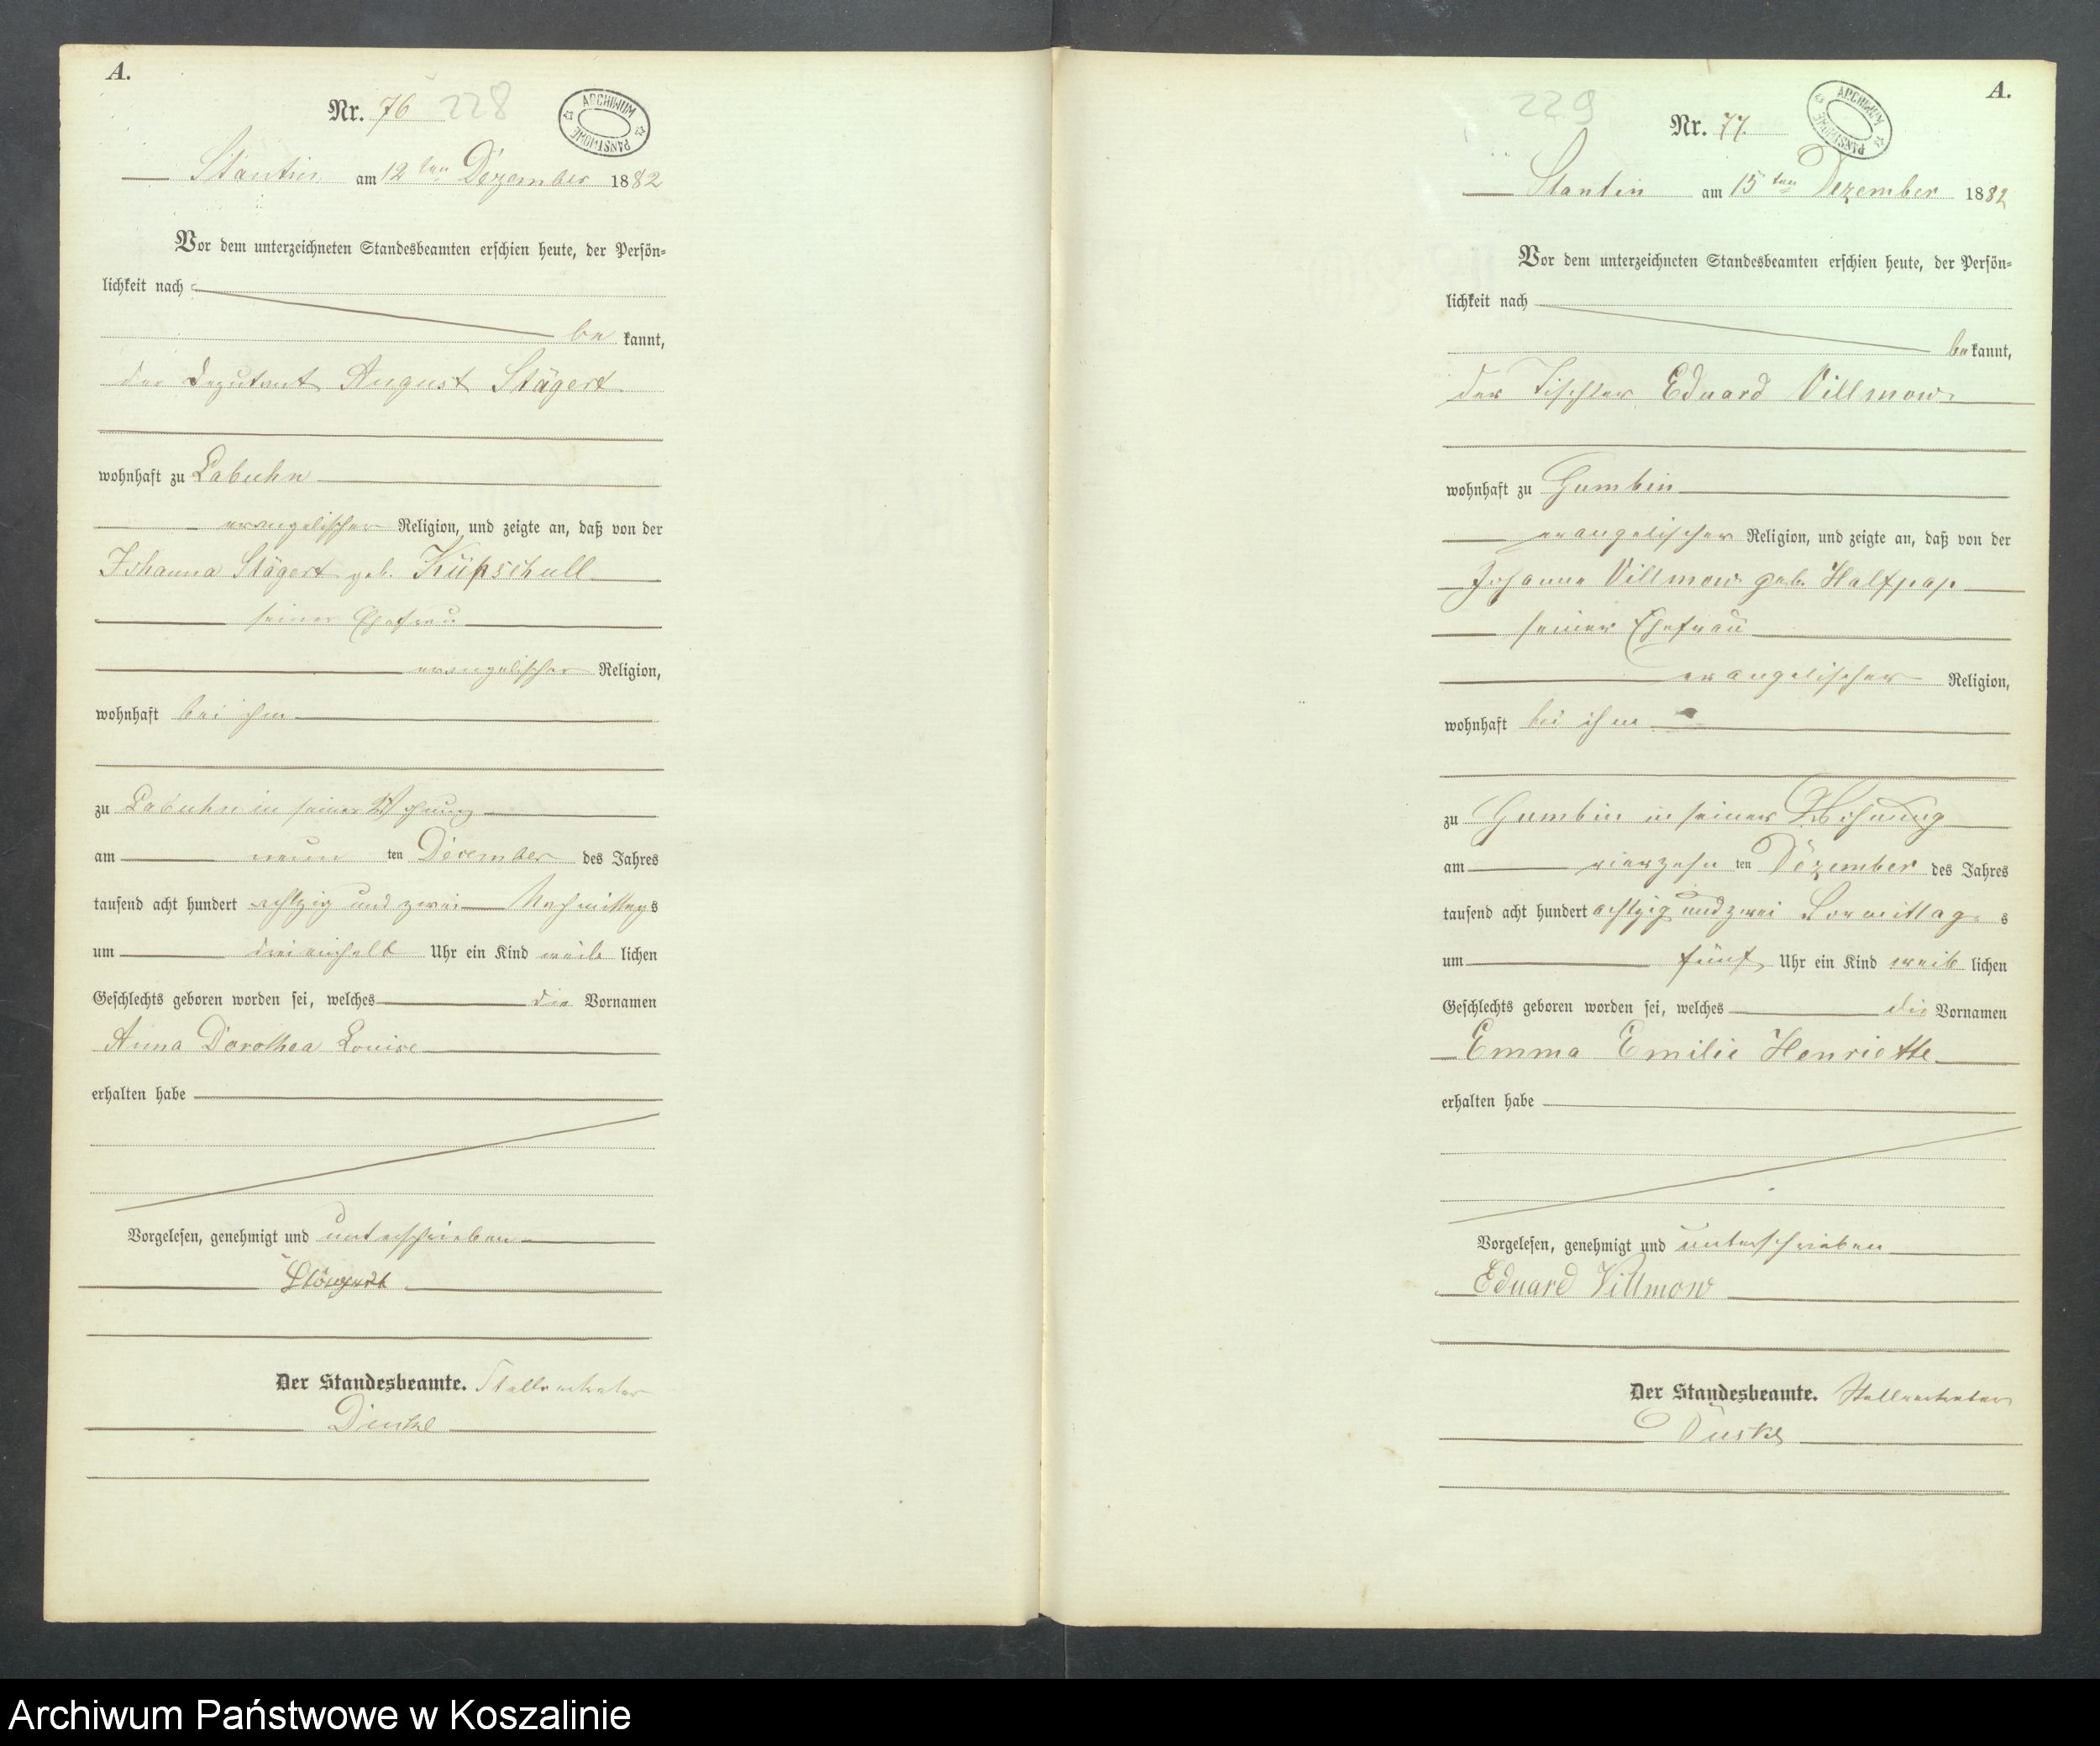 A.
Nr. 76 228
ARCHIWUM PAŃSTWOWE
Stantin am 12 ten Dezember 1882
Vor dem unterzeichneten Standesbeamten erschien heute, der Persön=
lichkeit nach
be kannt,
der Deputant August Stägert
wohnhaft zu Labuhn
evangelischer Religion, und zeigte an, daß von der
Johanna Stägert geb. Küpschull
seiner Ehefrau
evangelischer Religion,
wohnhaft bei ihm
zu Labuhn in seiner Wohnung
am neun ten Dezember des Jahres
tausend acht hundert achtzig und zwei Nachmittags
um Uhr ein Kind weib lichen
Geschlechts geboren worden sei, welches die Vornamen
Anna Dorothea Louise
erhalten habe
Vorgelesen, genehmigt und unterschrieben
Der Standesbeamte. Stellvertreter
A.
229 Nr. 77.
ARCHIWUM PAŃSTWOWE
Stantin am 15 ten Dezember 1882
Vor dem unterzeichneten Standesbeamten erschien heute, der Persön=
lichkeit nach
be kannt,
der Tischler Eduard Villmow
wohnhaft zu Gumbin
evangelischer Religion, und zeigte an, daß von der
Johanne Villmow geb. Halfpap
seiner Ehefrau
evangelischer Religion,
wohnhaft bei ihm
zu Gumbin in seiner Wohnung
am vierzehn ten Dezember des Jahres
tausend acht hundert achtzig und zwei Vormittag s
um fünf Uhr ein Kind weib lichen
Geschlechts geboren worden sei, welches die Vornamen
Emma Emilie Henriette
erhalten habe
Vorgelesen, genehmigt und unterschrieben
Eduard Villmow
Der Standesbeamte. Stellvertreter
Archiwum Państwowe w Koszalinie